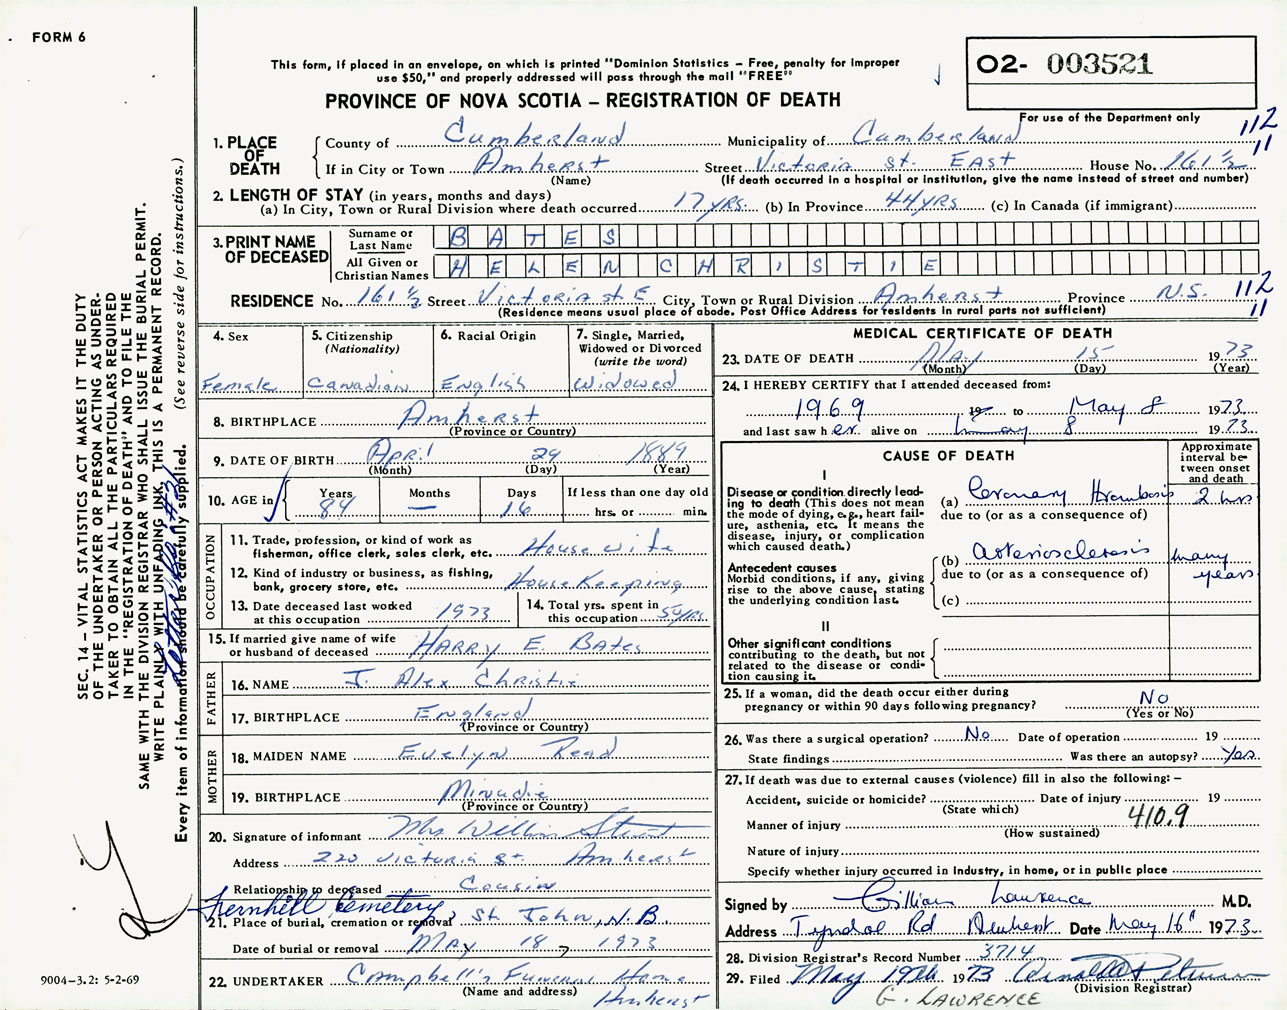 FORM 6
This form, if placed in an envelope, on which is printed "Dominion Statistics – Free, penalty for improper
use $50," and properly addressed will pass through the mail "FREE"
PROVINCE OF NOVA SCOTIA – REGISTRATION OF DEATH
02- 003521
For use of the Department only
112
11
1. PLACE OF DEATH
County of Cumberland Municipality of Cumberland
If in City or Town Amherst Street Victoria St. EAST House No. 161 1/2
(Name) (If death occurred in a hospital or institution, give the name instead of street and number)
2. LENGTH OF STAY (in years, months and days)
(a) In City, Town or Rural Division where death occurred 17 yrs. (b) In Province 44 yrs (c) In Canada (if immigrant)
3. PRINT NAME OF DECEASED
Surname or Last Name BATES
All Given or Christian Names HELEN CHRISTIE
RESIDENCE No. 161 1/2 Street Victoria St E City, Town or Rural Division Amherst Province N.S. 112
11
(Residence means usual place of abode. Post Office Address for residents in rural parts not sufficient)
4. Sex
Female
5. Citizenship (Nationality)
Canadian
6. Racial Origin
English
7. Single, Married, Widowed or Divorced (write the word)
Widowed
8. BIRTHPLACE Amherst
(Province or Country)
9. DATE OF BIRTH April 29 1889
(Month) (Day) (Year)
10. AGE in Years 84 Months — Days 16 If less than one day old hrs. or min.
OCCUPATION
11. Trade, profession, or kind of work as
fisherman, office clerk, sales clerk, etc. House wife
12. Kind of industry or business, as fishing,
bank, grocery store, etc. HouseKeeping
13. Date deceased last worked
at this occupation 1973
14. Total yrs. spent in
this occupation
15. If married give name of wife
or husband of deceased HARRY E. Bates
FATHER
16. NAME J. Alex Christie
17. BIRTHPLACE England
(Province or Country)
MOTHER
18. MAIDEN NAME Evelyn Read
19. BIRTHPLACE Minudie
(Province or Country)
20. Signature of informant Mrs
Address 220 Victoria St. Amherst
Relationship to deceased Cousin
Fernhill Cemetery,
21. Place of burial, cremation or removal St. John, N.B
Date of burial or removal May 18, 1973
22. UNDERTAKER Campbell's Funeral Home
(Name and address) Amherst
MEDICAL CERTIFICATE OF DEATH
23. DATE OF DEATH May 15 1973
(Month) (Day) (Year)
24. I HEREBY CERTIFY that I attended deceased from:
1969 19 to May 8 1973
and last saw her alive on 8 1973
CAUSE OF DEATH
Approximate interval between onset and death
I
Disease or condition directly leading to death (This does not
mean the mode of dying, e.g., heart failure, asthenia, etc. It means the
disease, injury, or complication
which caused death.)
(a) Coronary thrombosis 2 hrs
due to (or as a consequence of)
Antecedent causes
Morbid conditions, if any, giving
rise to the above cause, stating
the underlying condition last.
(b) arteriosclerosis many years
due to (or as a consequence of)
(c)
II
Other significant conditions
contributing to the death, but not
related to the disease or condition causing it.
25. If a woman, did the death occur either during
pregnancy or within 90 days following pregnancy? No
(Yes or No)
26. Was there a surgical operation? No Date of operation 19
State findings Was there an autopsy? Yes
27. If death was due to external causes (violence) fill in also the following: –
Accident, suicide or homicide? Date of injury 19
(State which)
Manner of injury 410.9
(How sustained)
Nature of injury
Specify whether injury occurred in industry, in home, or in public place
Signed by Gillian Lawrence M.D.
Address Tyndal Rd Amherst Date May 16 1973
28. Division Registrar's Record Number 3714
29. Filed May 19th 1973
(Division Registrar)
G. LAWRENCE
SEC. 14 – VITAL STATISTICS ACT MAKES IT THE DUTY
OF THE UNDERTAKER OR PERSON ACTING AS UNDER-
TAKER TO OBTAIN ALL THE PARTICULARS REQUIRED
IN THE "REGISTRATION OF DEATH" AND TO FILE THE
SAME WITH THE DIVISION REGISTRAR WHO SHALL ISSUE THE BURIAL PERMIT.
WRITE PLAINLY WITH UNFADING INK. THIS IS A PERMANENT RECORD.
Every item of information should be carefully supplied. (See reverse side for instructions.)
9004–3.2: 5-2-69